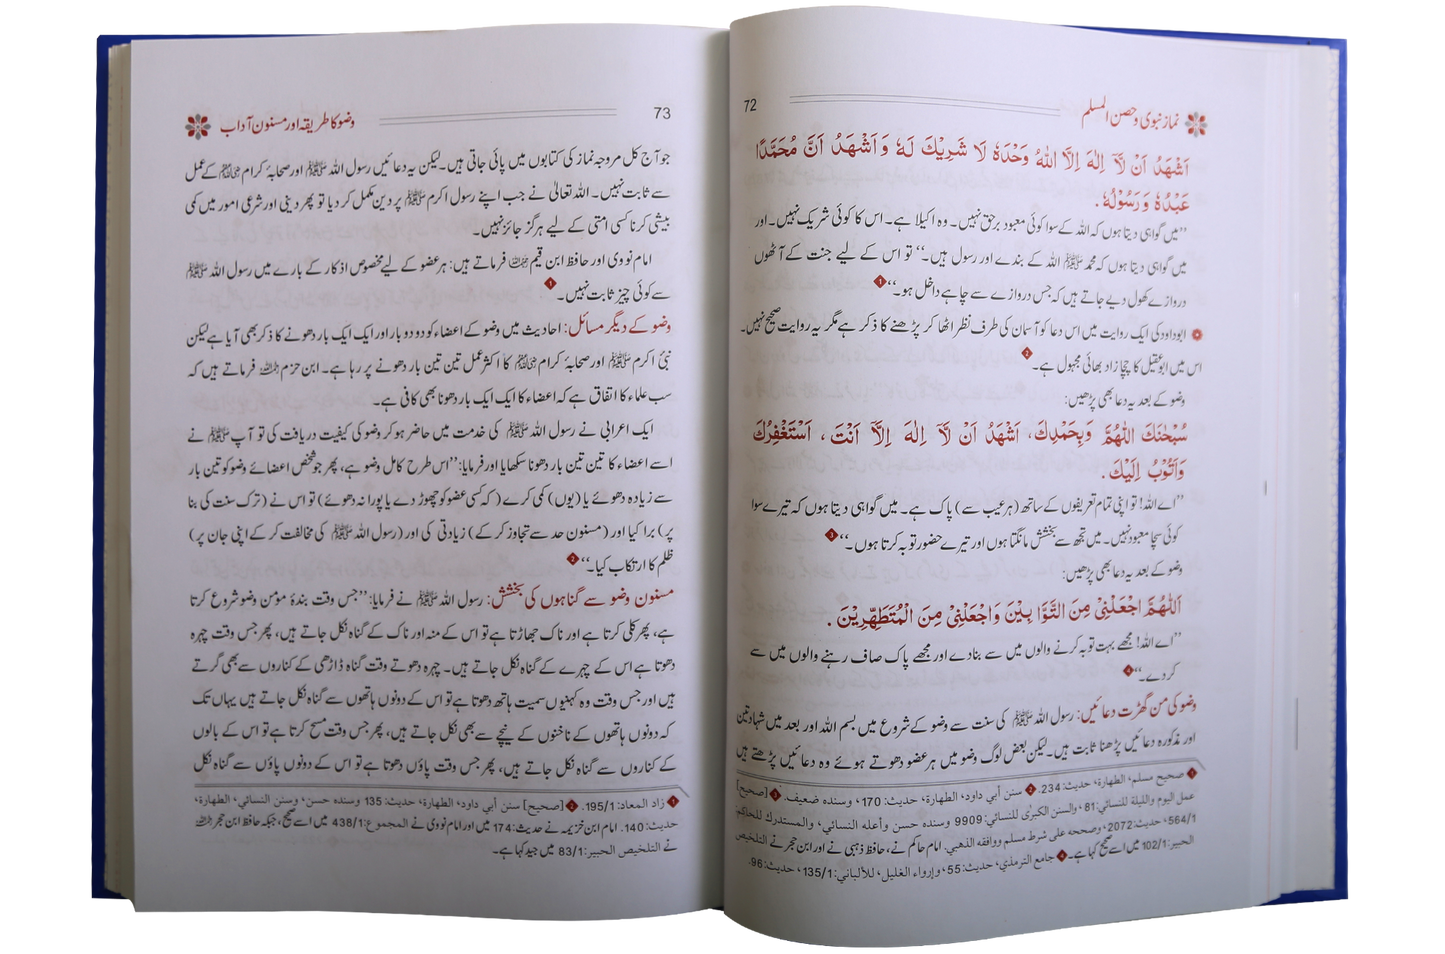 نماز نبوی وحصن المسلم
72
اَشْهَدُ اَنْ لَّآ اِلٰهَ اِلَّا اللهُ وَحْدَهٗ لَا شَرِيْكَ لَهٗ وَاَشْهَدُ اَنَّ مُحَمَّدًا
عَبْدُهٗ وَرَسُوْلُهٗ.
”میں گواہی دیتا ہوں کہ اللہ کے سوا کوئی معبود برحق نہیں۔ وہ اکیلا ہے۔ اس کا کوئی شریک نہیں۔ اور
میں گواہی دیتا ہوں کہ محمد ﷺ اللہ کے بندے اور رسول ہیں۔“ تو اس کے لیے جنت کے آٹھوں
دروازے کھول دیے جاتے ہیں کہ جس دروازے سے چاہے داخل ہو۔“ 1
ابوداود کی ایک روایت میں اس دعا کو آسمان کی طرف نظر اٹھا کر پڑھنے کا ذکر ہے مگر یہ روایت صحیح نہیں۔
اس میں ابوعقیل کا چچا زاد بھائی مجہول ہے۔ 2
وضو کے بعد یہ دعا بھی پڑھیں:
سُبْحٰنَكَ اللّٰهُمَّ وَبِحَمْدِكَ، اَشْهَدُ اَنْ لَّآ اِلٰهَ اِلَّآ اَنْتَ، اَسْتَغْفِرُكَ
وَاَتُوْبُ اِلَيْكَ.
”اے اللہ! تو اپنی تمام تعریفوں کے ساتھ (ہر عیب سے) پاک ہے۔ میں گواہی دیتا ہوں کہ تیرے سوا
کوئی سچا معبود نہیں۔ میں تجھ سے بخشش مانگتا ہوں اور تیرے حضور توبہ کرتا ہوں۔“ 3
وضو کے بعد یہ دعا بھی پڑھیں:
اَللّٰهُمَّ اجْعَلْنِيْ مِنَ التَّوَّابِيْنَ وَاجْعَلْنِيْ مِنَ الْمُتَطَهِّرِيْنَ.
”اے اللہ! مجھے بہت توبہ کرنے والوں میں سے بنا دے اور مجھے پاک صاف رہنے والوں میں سے
کر دے۔“ 4
وضو کی من گھڑت دعائیں: رسول اللہ ﷺ کی سنت سے وضو کے شروع میں بسم اللہ اور بعد میں شہادتین
اور مذکورہ دعائیں پڑھنا ثابت ہیں۔ لیکن بعض لوگ وضو میں ہر عضو دھوتے ہوئے وہ دعائیں پڑھتے ہیں
1 صحیح مسلم، الطهارة، حدیث: 234. 2 سنن أبي داود، الطهارة، حدیث: 170، وسنده ضعيف. 3 [صحیح]
عمل اليوم والليلة للنسائي: 81، والسنن الكبرى للنسائي: 9909 وسنده حسن وأعله النسائي، والمستدرك للحاكم:
564/1، حدیث: 2072، وصححه على شرط مسلم ووافقه الذهبي. امام حاکم نے، حافظ ذہبی نے اور ابن حجر نے التلخيص
الحبير: 102/1 میں اسے صحیح کہا ہے۔ 4 جامع الترمذي، حديث: 55، وإرواء الغليل، للألباني: 135/1، حديث: 96.
73
وضو کا طریقہ اور مسنون آداب
جو آج کل مروجہ نماز کی کتابوں میں پائی جاتی ہیں۔ لیکن یہ دعائیں رسول اللہ ﷺ اور صحابۂ کرام رضی اللہ عنہم کے عمل
سے ثابت نہیں۔ اللہ تعالیٰ نے جب اپنے رسول اکرم ﷺ پر دین مکمل کر دیا تو پھر دینی اور شرعی امور میں کمی
بیشی کرنا کسی امتی کے لیے ہرگز جائز نہیں۔
امام نووی اور حافظ ابن قیم رحمہما اللہ فرماتے ہیں: ہر عضو کے لیے مخصوص اذکار کے بارے میں رسول اللہ ﷺ
سے کوئی چیز ثابت نہیں۔ 1
وضو کے دیگر مسائل: احادیث میں وضو کے اعضاء کو دو دو بار اور ایک ایک بار دھونے کا ذکر بھی آیا ہے لیکن
نبیٔ اکرم ﷺ اور صحابۂ کرام رضی اللہ عنہم کا اکثر عمل تین تین بار دھونے پر رہا ہے۔ ابن حزم رحمہ اللہ فرماتے ہیں کہ
سب علماء کا اتفاق ہے کہ اعضاء کا ایک ایک بار دھونا بھی کافی ہے۔
ایک اعرابی نے رسول اللہ ﷺ کی خدمت میں حاضر ہو کر وضو کی کیفیت دریافت کی تو آپ ﷺ نے
اسے اعضاء کا تین تین بار دھونا سکھایا اور فرمایا: ”اس طرح کامل وضو ہے، پھر جو شخص اعضائے وضو کو تین بار
سے زیادہ دھوئے یا (یوں) کمی کرے (کہ کسی عضو کو چھوڑ دے یا پورا نہ دھوئے) تو اس نے (ترک سنت کی بنا
پر) برا کیا اور (مسنون حد سے تجاوز کر کے) زیادتی کی اور (رسول اللہ ﷺ کی مخالفت کر کے اپنی جان پر)
ظلم کا ارتکاب کیا۔“ 2
مسنون وضو سے گناہوں کی بخشش: رسول اللہ ﷺ نے فرمایا: ”جس وقت بندۂ مومن وضو شروع کرتا
ہے، پھر کلی کرتا ہے اور ناک جھاڑتا ہے تو اس کے منہ اور ناک کے گناہ نکل جاتے ہیں، پھر جس وقت چہرہ
دھوتا ہے اس کے چہرے کے گناہ نکل جاتے ہیں۔ چہرہ دھوتے وقت گناہ ڈاڑھی کے کناروں سے بھی گرتے
ہیں اور جس وقت وہ کہنیوں سمیت ہاتھ دھوتا ہے تو اس کے دونوں ہاتھوں سے گناہ نکل جاتے ہیں یہاں تک
کہ دونوں ہاتھوں کے ناخنوں کے نیچے سے بھی نکل جاتے ہیں، پھر جس وقت مسح کرتا ہے تو اس کے بالوں
کے کناروں سے گناہ نکل جاتے ہیں، پھر جس وقت پاؤں دھوتا ہے تو اس کے دونوں پاؤں سے گناہ نکل
1 زاد المعاد: 195/1. 2 [صحیح] سنن أبي داود، الطهارة، حديث: 135 وسنده حسن، وسنن النسائي، الطهارة،
حديث: 140. امام ابن خزیمہ نے حدیث: 174 میں اور امام نووی نے المجموع: 438/1 میں اسے صحیح، جبکہ حافظ ابن حجر رحمہ اللہ
نے التلخيص الحبير: 83/1 میں جید کہا ہے۔